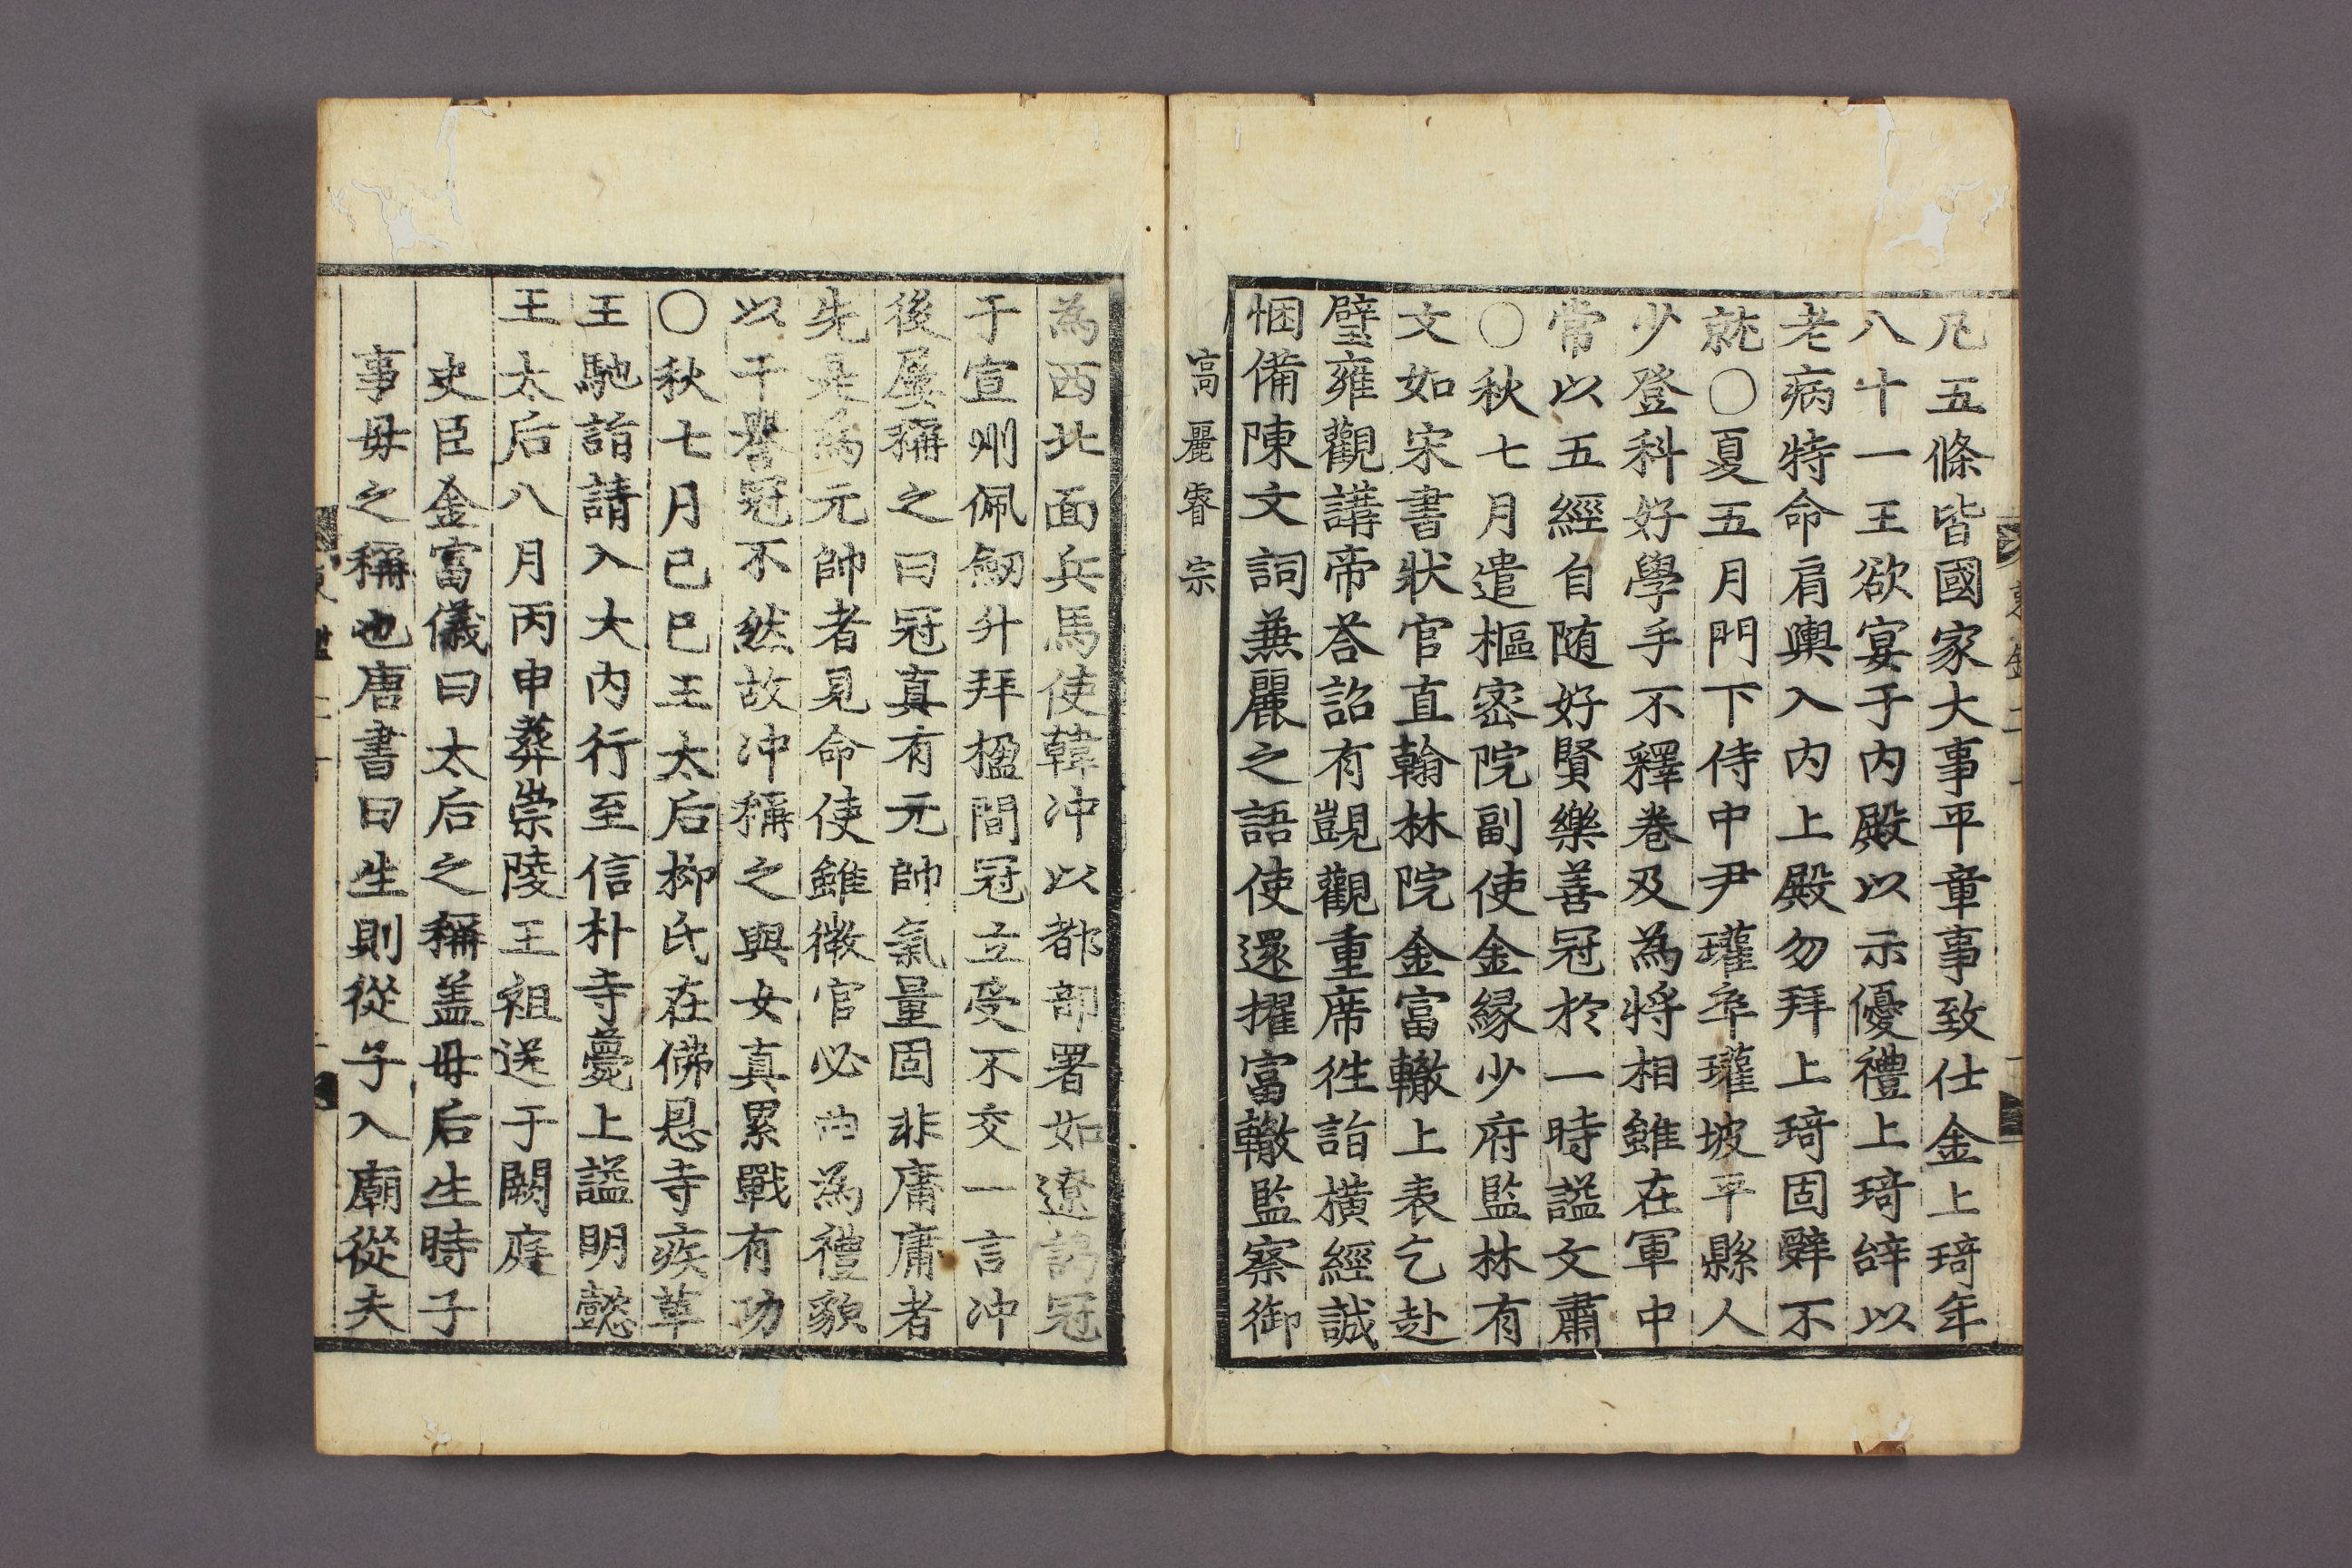 凡五條皆國家大事平章事致仕金上琦年
八十一王欲宴于內殿以示優禮上琦辝以
老病特命肩輿入內上殿勿拜上琦固辭不
就○夏五月門下侍中尹瓘卒瓘坡平縣人
少登科好學手不釋卷及為將相雖在軍中
常以五經自随好賢樂善冠於一時謚文肅
○秋七月遣樞密院副使金緣少府監林有
文如宋書狀官直翰林院金富轍上表乞赴
璧雍觀講帝荅詔有豈觀重席徃詣橫經誠
悃備陳文詞兼麗之語使還擢富轍監察御
高麗睿宗
為西北面兵馬使韓冲以都部署如遼謁冠
于宣州佩劒升拜楹間冠立受不交一言冲
後屢稱之曰冠真有元帥氣量固非庸庸者
先是為元帥者見命使雖微官必曲為禮貌
以干譽冠不然故冲稱之與女真累戰有功
○秋七月己巳王太后柳氏在佛恩寺疾革
王馳詣請入大內行至信朴寺薨上謚明懿
王太后八月丙申葬崇陵王祖送于闕庭
史臣金富儀曰太后之稱盖母后生時子
事母之稱也唐書曰生則從子入廟從夫